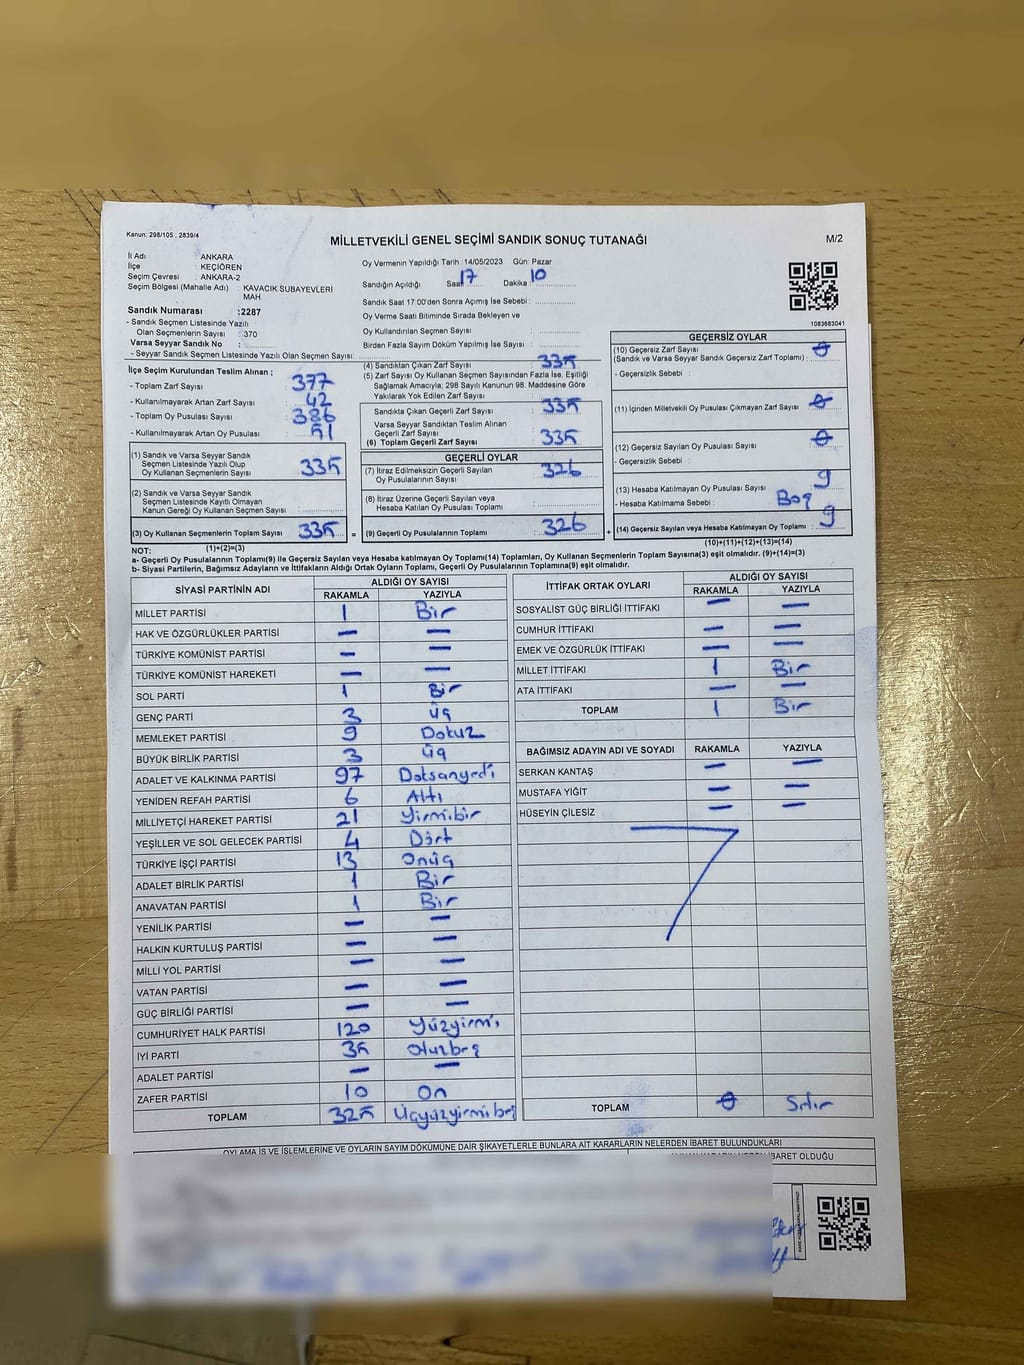 Kanun: 298/105 ; 2839/4
MİLLETVEKİLİ GENEL SEÇİMİ SANDIK SONUÇ TUTANAĞI
M/2
İl Adı : ANKARA
İlçe : KEÇİÖREN
Seçim Çevresi : ANKARA-2
Seçim Bölgesi (Mahalle Adı) : KAVACIK SUBAYEVLERİ MAH.
Sandık Numarası :2287
- Sandık Seçmen Listesinde Yazılı
Olan Seçmenlerin Sayısı : 370
Varsa Seyyar Sandık No :
- Seyyar Sandık Seçmen Listesinde Yazılı Olan Seçmen Sayısı:
Oy Vermenin Yapıldığı Tarih :14/05/2023 Gün: Pazar
Sandığın Açıldığı Saat 17 Dakika 10
Sandık Saat 17:00'den Sonra Açımış İse Sebebi :
Oy Verme Saati Bitiminde Sırada Bekleyen ve
Oy Kullandırılan Seçmen Sayısı :
Birden Fazla Sayım Döküm Yapılmış İse Sayısı :
1083683041
İlçe Seçim Kurulundan Teslim Alınan ;
- Toplam Zarf Sayısı : 377
- Kullanılmayarak Artan Zarf Sayısı : 42
- Toplam Oy Pusulası Sayısı : 386
- Kullanılmayarak Artan Oy Pusulası : 51
(1) Sandık ve Varsa Seyyar Sandık
Seçmen Listesinde Yazılı Olup
Oy Kullanan Seçmenlerin Sayısı : 335
(2) Sandık ve Varsa Seyyar Sandık
Seçmen Listesinde Kayıtlı Olmayan
Kanun Gereği Oy Kullanan Seçmen Sayısı :
(3) Oy Kullanan Seçmenlerin Toplam Sayısı : 335
(1)+(2)=(3)
(4) Sandıktan Çıkan Zarf Sayısı : 335
(5) Zarf Sayısı Oy Kullanan Seçmen Sayısından Fazla İse, Eşitliği
Sağlamak Amacıyla; 298 Sayılı Kanunun 98. Maddesine Göre
Yakılarak Yok Edilen Zarf Sayısı :
Sandıkta Çıkan Geçerli Zarf Sayısı : 335
Varsa Seyyar Sandıktan Teslim Alınan
Geçerli Zarf Sayısı :
(6) Toplam Geçerli Zarf Sayısı : 335
GEÇERLİ OYLAR
(7) İtiraz Edilmeksizin Geçerli Sayılan
Oy Pusulalarının Sayısı : 326
(8) İtiraz Üzerine Geçerli Sayılan veya
Hesaba Katılan Oy Pusulası Toplamı :
= (9) Geçerli Oy Pusulalarının Toplamı : 326
GEÇERSİZ OYLAR
(10) Geçersiz Zarf Sayısı
(Sandık ve Varsa Seyyar Sandık Geçersiz Zarf Toplamı) : 0
- Geçersizlik Sebebi :
(11) İçinden Milletvekili Oy Pusulası Çıkmayan Zarf Sayısı : 0
(12) Geçersiz Sayılan Oy Pusulası Sayısı : 0
- Geçersizlik Sebebi :
(13) Hesaba Katılmayan Oy Pusulası Sayısı : 9
- Hesaba Katılmama Sebebi : Boş
+ (14) Geçersiz Sayılan veya Hesaba Katılmayan Oy Toplamı : 9
(10)+(11)+(12)+(13)=(14)
NOT:
a- Geçerli Oy Pusulalarının Toplamı(9) ile Geçersiz Sayılan veya Hesaba katılmayan Oy Toplamı(14) Toplamları, Oy Kullanan Seçmenlerin Toplam Sayısına(3) eşit olmalıdır. (9)+(14)=(3)
b- Siyasi Partilerin, Bağımsız Adayların ve İttifakların Aldığı Ortak Oyların Toplamı, Geçerli Oy Pusulalarının Toplamına(9) eşit olmalıdır.
SİYASİ PARTİNİN ADI ALDIĞI OY SAYISI
RAKAMLA YAZIYLA
MİLLET PARTİSİ 1 Bir
HAK VE ÖZGÜRLÜKLER PARTİSİ — —
TÜRKİYE KOMÜNİST PARTİSİ — —
TÜRKİYE KOMÜNİST HAREKETİ — —
SOL PARTİ 1 Bir
GENÇ PARTİ 3 üç
MEMLEKET PARTİSİ 9 Dokuz
BÜYÜK BİRLİK PARTİSİ 3 üç
ADALET VE KALKINMA PARTİSİ 97 Doksanyedi
YENİDEN REFAH PARTİSİ 6 Altı
MİLLİYETÇİ HAREKET PARTİSİ 21 Yirmibir
YEŞİLLER VE SOL GELECEK PARTİSİ 4 Dört
TÜRKİYE İŞÇİ PARTİSİ 13 Onüç
ADALET BİRLİK PARTİSİ 1 Bir
ANAVATAN PARTİSİ 1 Bir
YENİLİK PARTİSİ — —
HALKIN KURTULUŞ PARTİSİ — —
MİLLİ YOL PARTİSİ — —
VATAN PARTİSİ — —
GÜÇ BİRLİĞİ PARTİSİ — —
CUMHURİYET HALK PARTİSİ 120 Yüzyirmi
İYİ PARTİ 35 Otuzbeş
ADALET PARTİSİ — —
ZAFER PARTİSİ 10 On
TOPLAM 325 Üçyüzyirmibeş
İTTİFAK ORTAK OYLARI ALDIĞI OY SAYISI
RAKAMLA YAZIYLA
SOSYALİST GÜÇ BİRLİĞİ İTTİFAKI — —
CUMHUR İTTİFAKI — —
EMEK VE ÖZGÜRLÜK İTTİFAKI — —
MİLLET İTTİFAKI 1 Bir
ATA İTTİFAKI — —
TOPLAM 1 Bir
BAĞIMSIZ ADAYIN ADI VE SOYADI RAKAMLA YAZIYLA
SERKAN KANTAŞ — —
MUSTAFA YİĞİT — —
HÜSEYİN ÇİLESİZ — —
TOPLAM 0 Sıfır
OYLAMA İŞ VE İŞLEMLERİNE VE OYLARIN SAYIM DÖKÜMÜNE DAİR ŞİKAYETLERLE BUNLARA AİT KARARLARIN NELERDEN İBARET BULUNDUKLARI
İBARET OLDUĞU